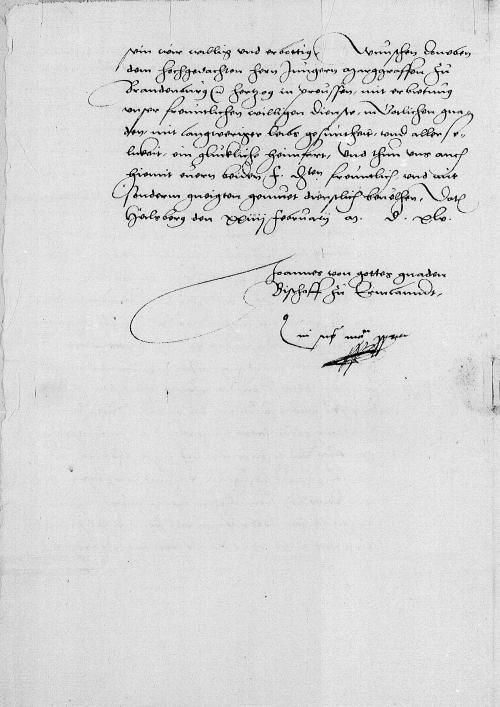 sein wir willig und erbottig. Wunschen doneben
dem hochgedachten hern Jungern Marggraffen zu
Brandenburg und hertzog in Preussen, mit erbietung
unser freuntlichen willigen dienste, in gna
den, mit langwiriger leibs gesuntheit, und aller se
likeit, ein gluckliche heimfart, Und thun uns auch
hiemit euern beiden f. dten freuntlich und mit
sonderm gneigten gemuet dienstlich bevelhen. Dat
Heilsberg den xxiiij Februarij M. D. xlv.
Joannes von gottes gnaden
Bischoff zu Ermlandt.